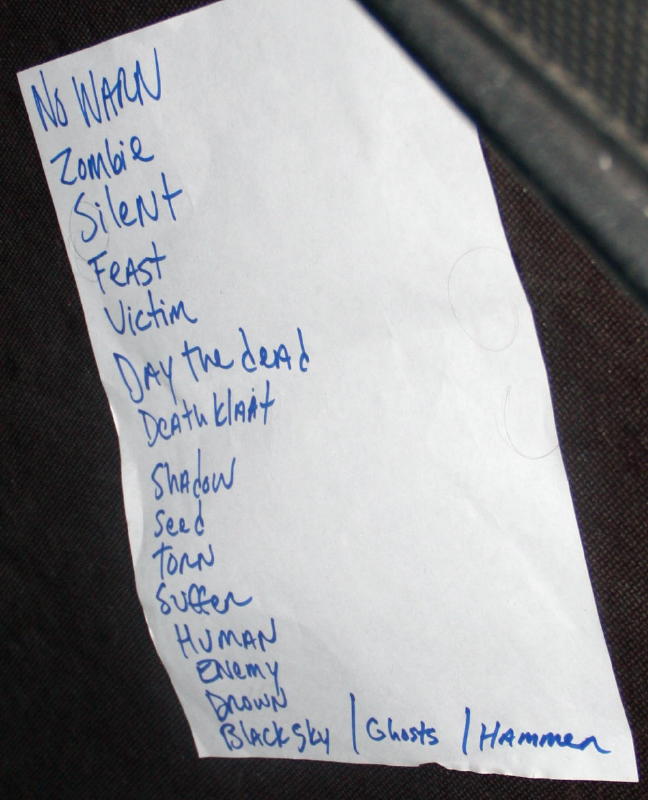 No WARN
Zombie
Silent
Feast
Victim
Day the dead
Deathklaat
Shadow
Seed
Torn
Suffer
Human
Enemy
Drown
Black Sky / Ghosts / Hammer